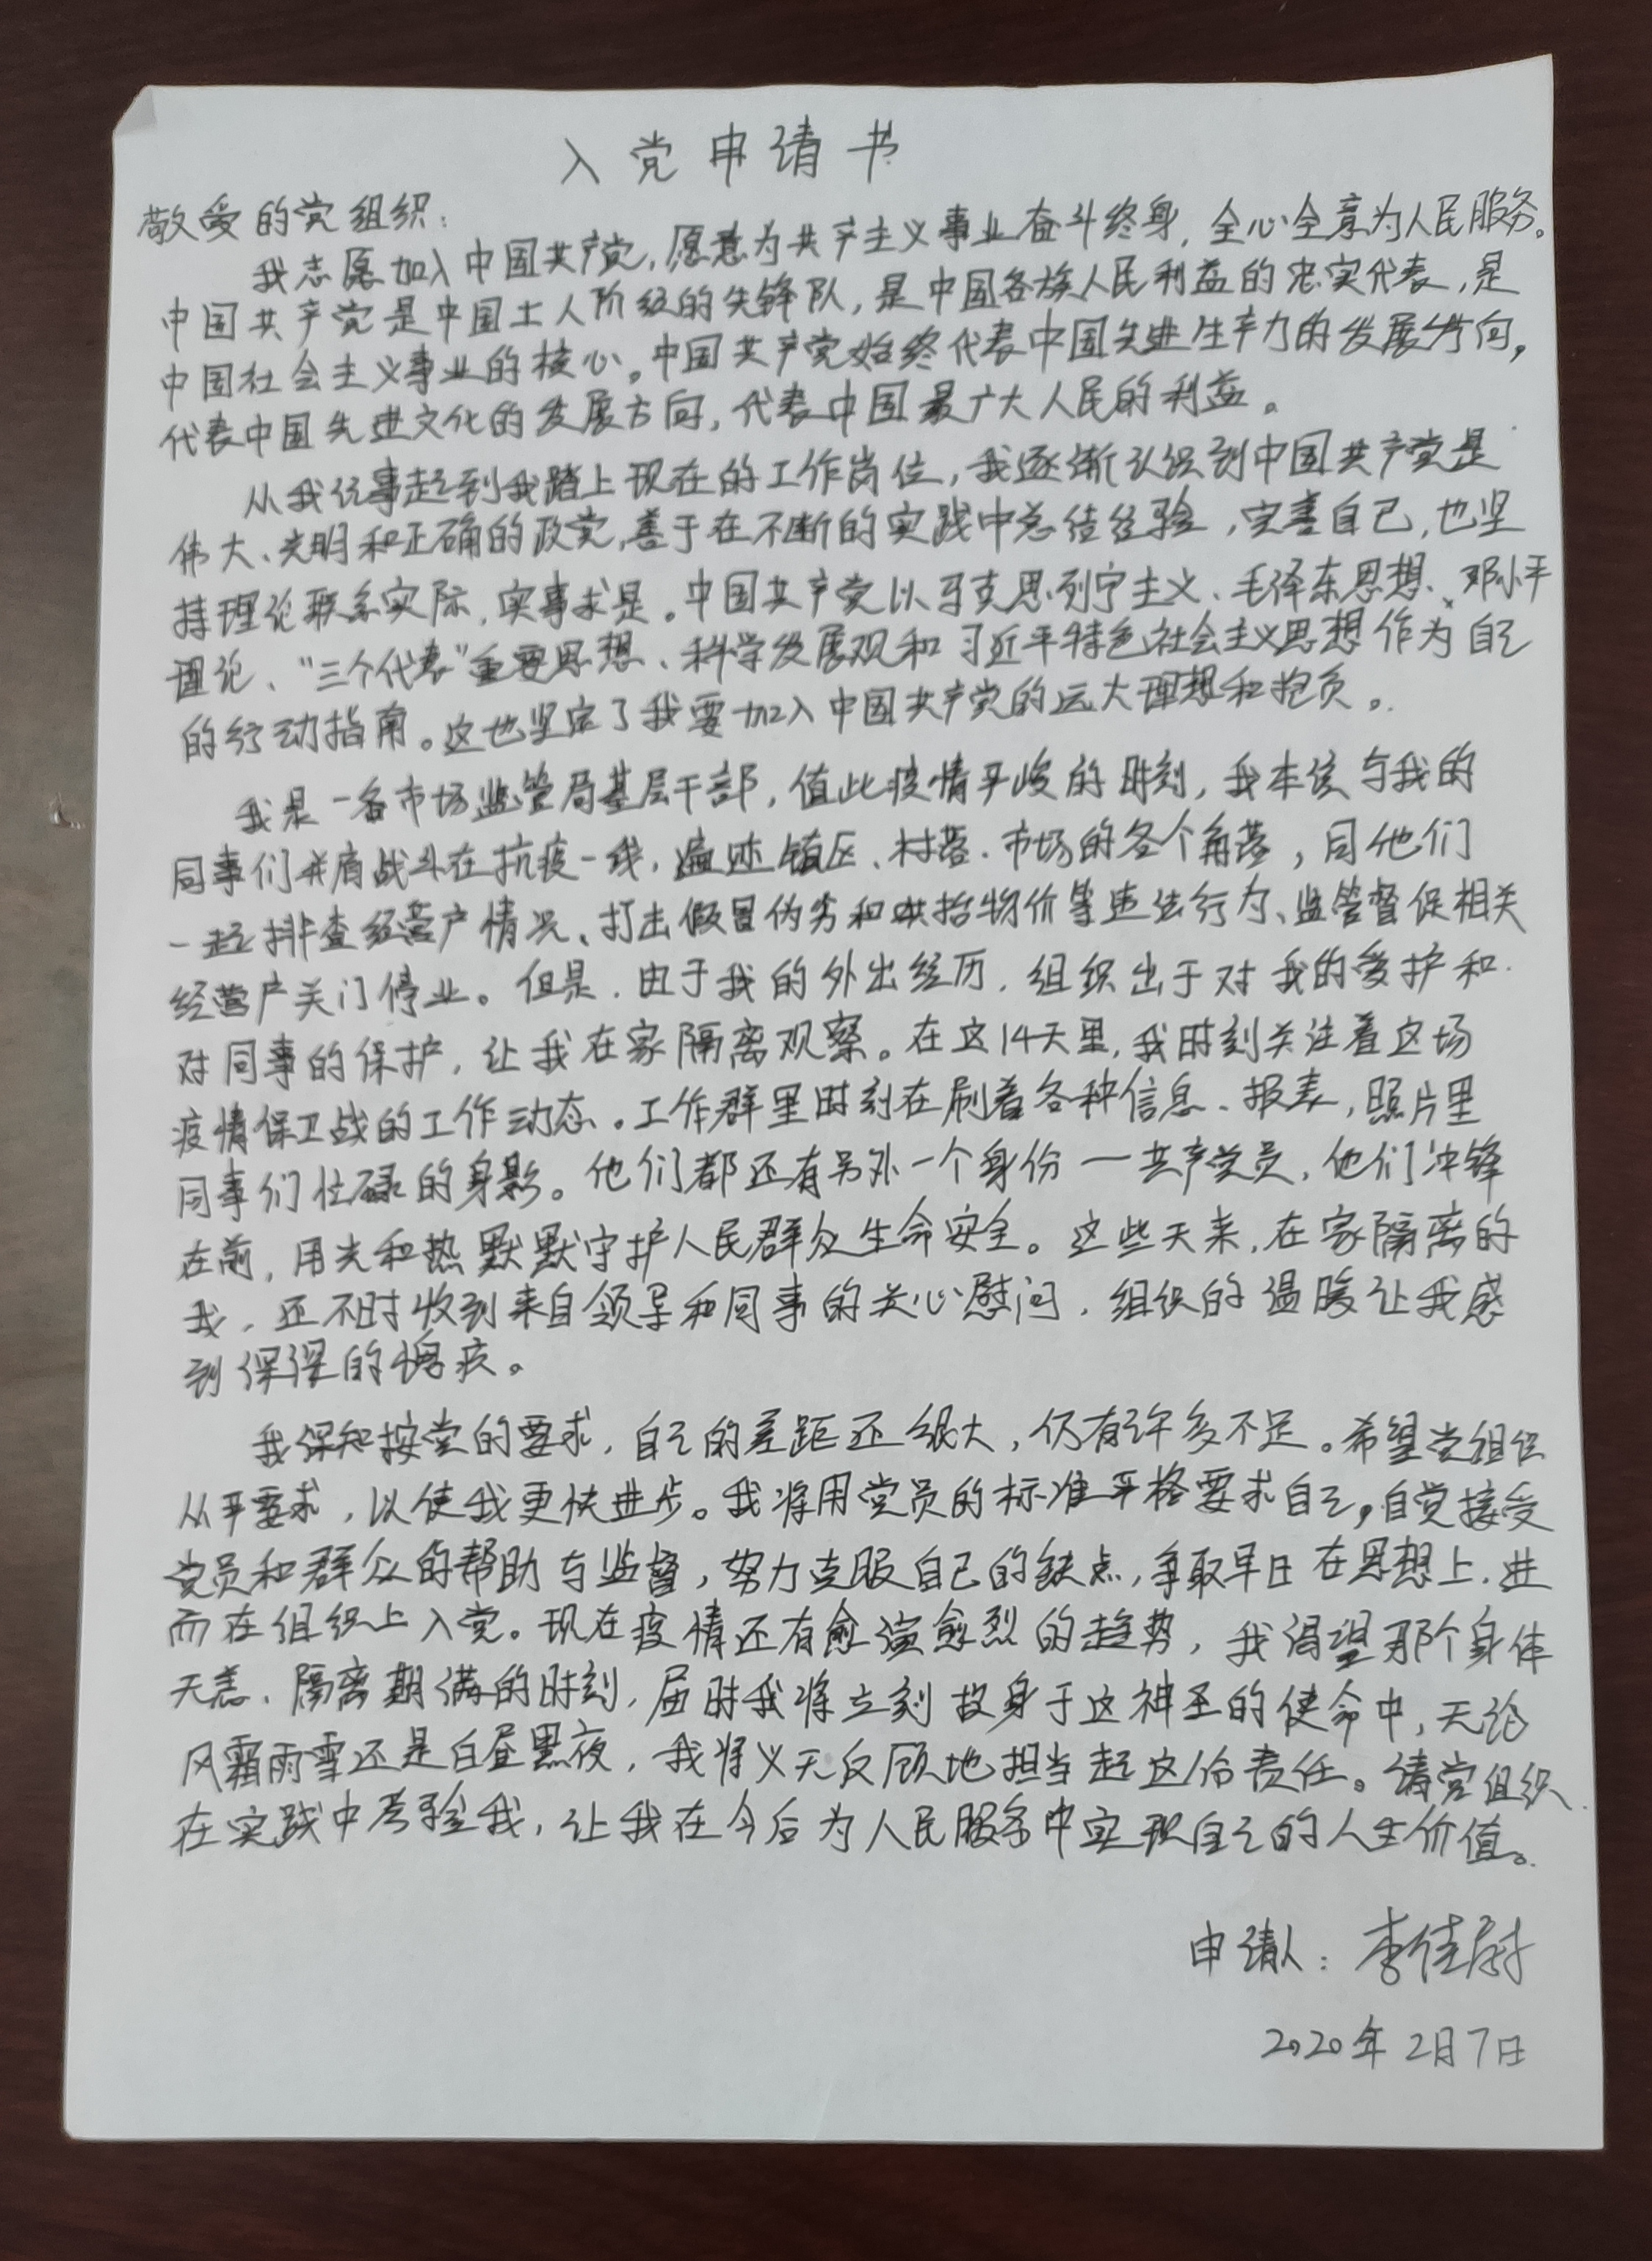 入党申请书
敬爱的党组织：
我志愿加入中国共产党，愿意为共产主义事业奋斗终身，全心全意为人民服务。
中国共产党是中国工人阶级的先锋队，是中国各族人民利益的忠实代表，是
中国社会主义事业的核心。中国共产党始终代表中国先进生产力的发展方向，
代表中国先进文化的发展方向，代表中国最广大人民的利益。
从我记事起到我踏上现在的工作岗位，我逐渐认识到中国共产党是
伟大、光明和正确的政党，善于在不断的实践中总结经验，完善自己，也坚
持理论联系实际，实事求是。中国共产党以马克思列宁主义、毛泽东思想、邓小平
理论、“三个代表”重要思想、科学发展观和习近平特色社会主义思想作为自己
的行动指南。这也坚定了我要加入中国共产党的远大理想和抱负。
我是一名市场监管局基层干部，值此疫情严峻的时刻，我本该与我的
同事们并肩战斗在抗疫一线，遍迹镇区、村落、市场的各个角落，同他们
一起排查经营户情况、打击假冒伪劣和哄抬物价等违法行为、监管督促相关
经营户关门停业。但是，由于我的外出经历，组织出于对我的爱护和
对同事的保护，让我在家隔离观察。在这14天里，我时刻关注着这场
疫情保卫战的工作动态。工作群里时刻在刷着各种信息、报表，照片里
同事们忙碌的身影。他们都还有另外一个身份一共产党员，他们冲锋
在前，用光和热默默守护人民群众生命安全。这些天来，在家隔离的
我，还不时收到来自领导和同事的关心慰问，组织的温暖让我感
到深深的愧疚。
我深知按党的要求，自己的差距还很大，仍有许多不足。希望党组织
从严要求，以使我更快进步。我将用党员的标准严格要求自己，自觉接受
党员和群众的帮助与监督，努力克服自己的缺点，争取早日在思想上，进
而在组织上入党。现在疫情还有愈演愈烈的趋势，我渴望那个身体
无恙、隔离期满的时刻，届时我将立刻投身于这神圣的使命中，无论
风霜雨雪还是白昼黑夜，我将义无反顾地担当起这份责任。请党组织
在实践中考验我，让我在今后为人民服务中实现自己的人生价值。
申请人：李佳尉
2020年2月7日